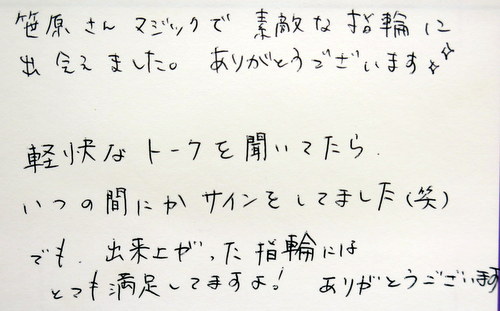 笹原さん マジックで 素敵な指輪に
出会えました。 ありがとうございます☆☆
軽快なトークを聞いてたら.
いつの間にかサインをしてました(笑)
でも. 出来上がった指輪には
とても満足してますよ! ありがとうございます